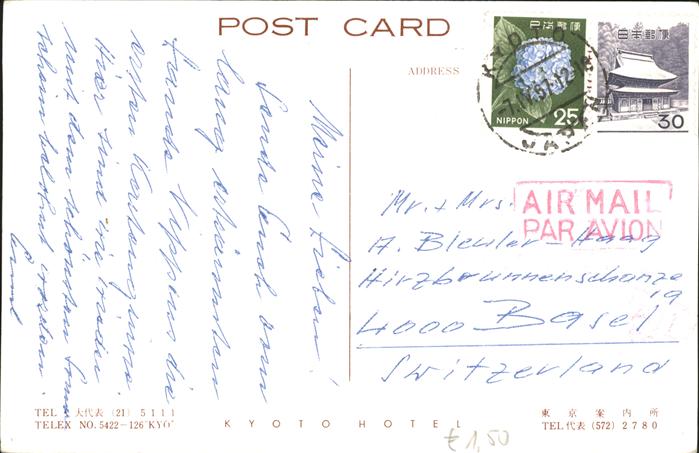 POST CARD
ADDRESS
日本郵便
25
NIPPON
日本郵便
30
KYOTO
JAPAN
AIR MAIL
PAR AVION
Meine Lieben!
Sende Euch vom
lang ersehnten
Lande Nippons die
ersten
Hier sind wir
mit dem schönsten
Mr. + Mrs.
A. Bieler-Haag
Hirzbrunnenschanze
4000 Basel
Switzerland
TEL 大代表 (21) 5111
TELEX NO. 5422-126 "KYO"
KYOTO HOTEL
東京案内所
TEL代表 (572) 2780
€ 1,50